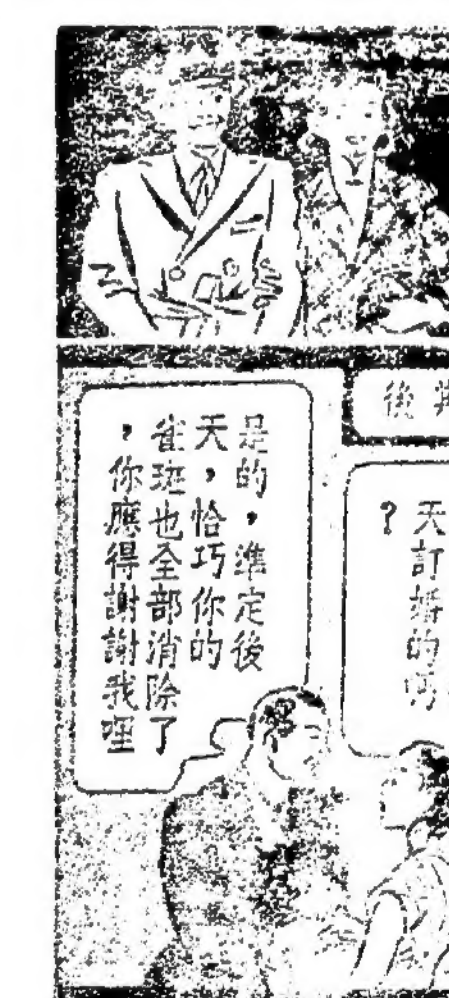 後
天訂婚的嗎
?
是的,準定後
天,恰巧你的
雀斑也全部消除了
,你應得謝謝我哩